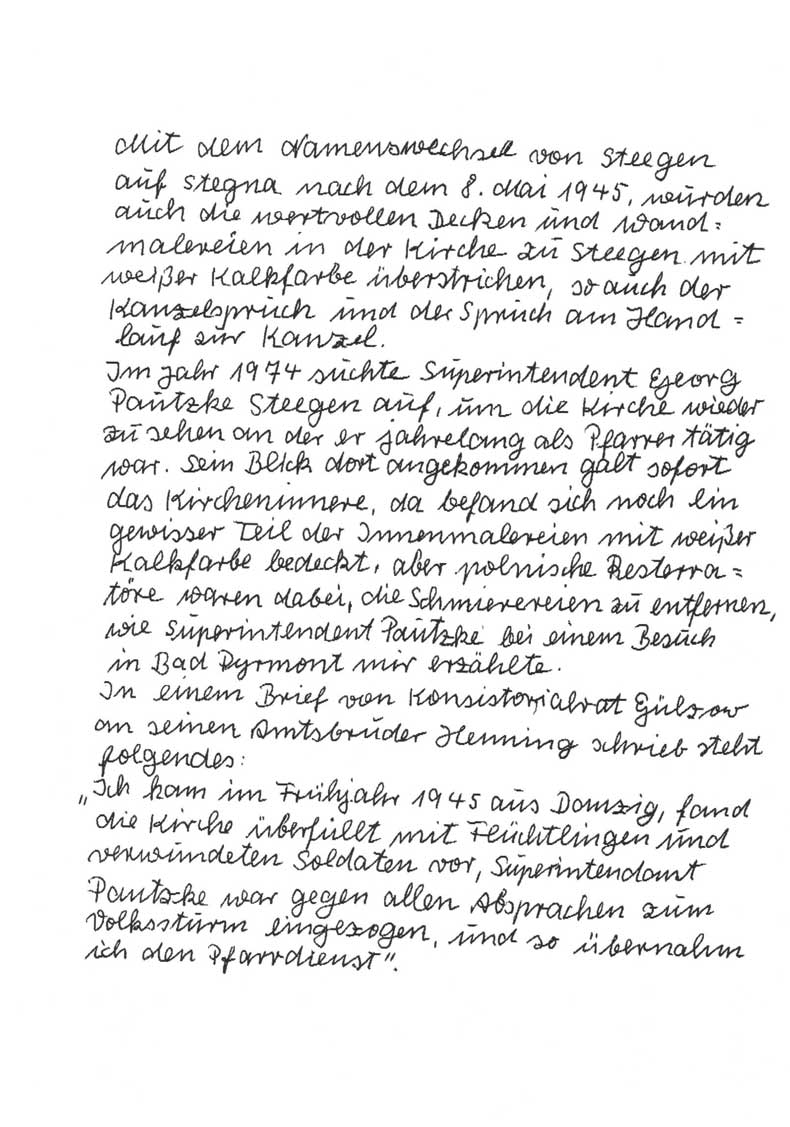 Mit dem Namenswechsel von Steegen
auf Stegna nach dem 8. Mai 1945, wurden
auch die wertvollen Decken und Wand=
malereien in der Kirche zu Steegen mit
weißer Kalkfarbe überstrichen, so auch der
Kanzelspruch und der Spruch am Hand=
lauf zur Kanzel.
Im Jahr 1974 suchte Superintendent Georg
Pautzke Steegen auf, um die Kirche wieder
zu sehen an der er jahrelang als Pfarrer tätig
war. Sein Blick dort angekommen galt sofort
das Kircheninnere, da befand sich noch ein
gewisser Teil der Innenmalereien mit weißer
Kalkfarbe bedeckt, aber polnische Resterra=
töre waren dabei, die Schmierereien zu entfernen,
wie Superintendent Pautzke bei einem Besuch
in Bad Pyrmont mir erzählte.
In einem Brief von Konsistorialrat Gülzow
an seinen Amtsbruder Henning schrieb steht
folgendes:
„Ich kam im Frühjahr 1945 aus Danzig, fand
die Kirche überfüllt mit Flüchtlingen und
verwundeten Soldaten vor, Superintendamt
Pautzke war gegen allen Absprachen zum
Volkssturm eingezogen, und so übernahm
ich den Pfarrdienst".